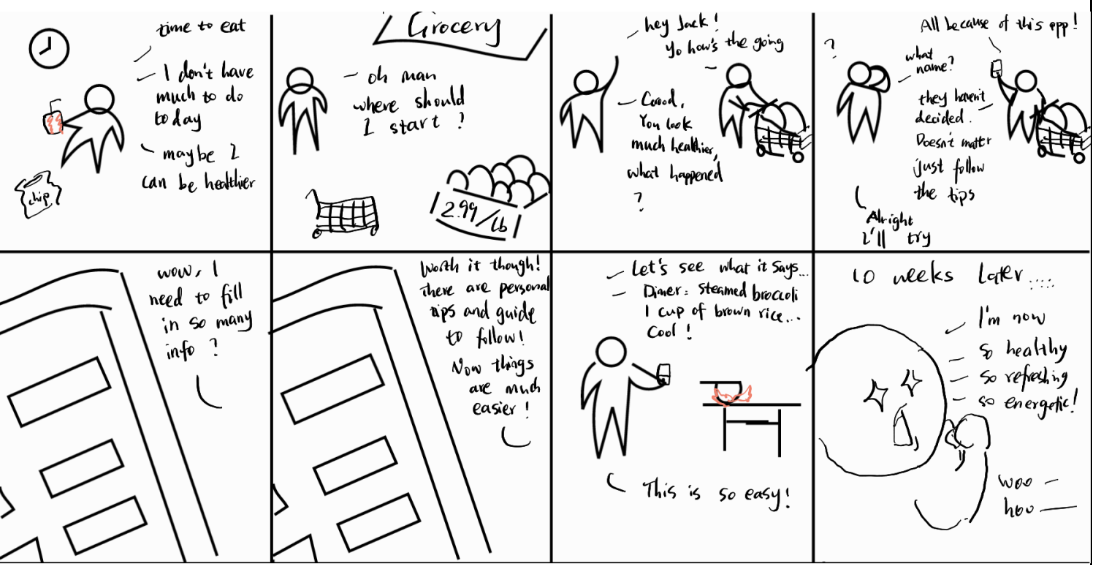 time to eat
I don't have
much to do
today
maybe I
can be healthier
chip
Grocery
oh man
where should
I start ?
2.99/Lb
hey Jack !
yo how's the going
Good,
You look
much healthier,
what happened
?
All because of this app !
?
what
name?
they haven't
decided.
Doesn't matter
just follow
the tips
Alright
I'll try
wow, I
need to fill
in so many
info ?
Worth it though!
there are personal
tips and guide
to follow!
Now things
are much
easier !
Let's see what it says...
Dinner: steamed broccoli
1 cup of brown rice...
Cool !
This is so easy!
10 weeks later.....
I'm now
so healthy
so refreshing
so energetic!
woo
hoo